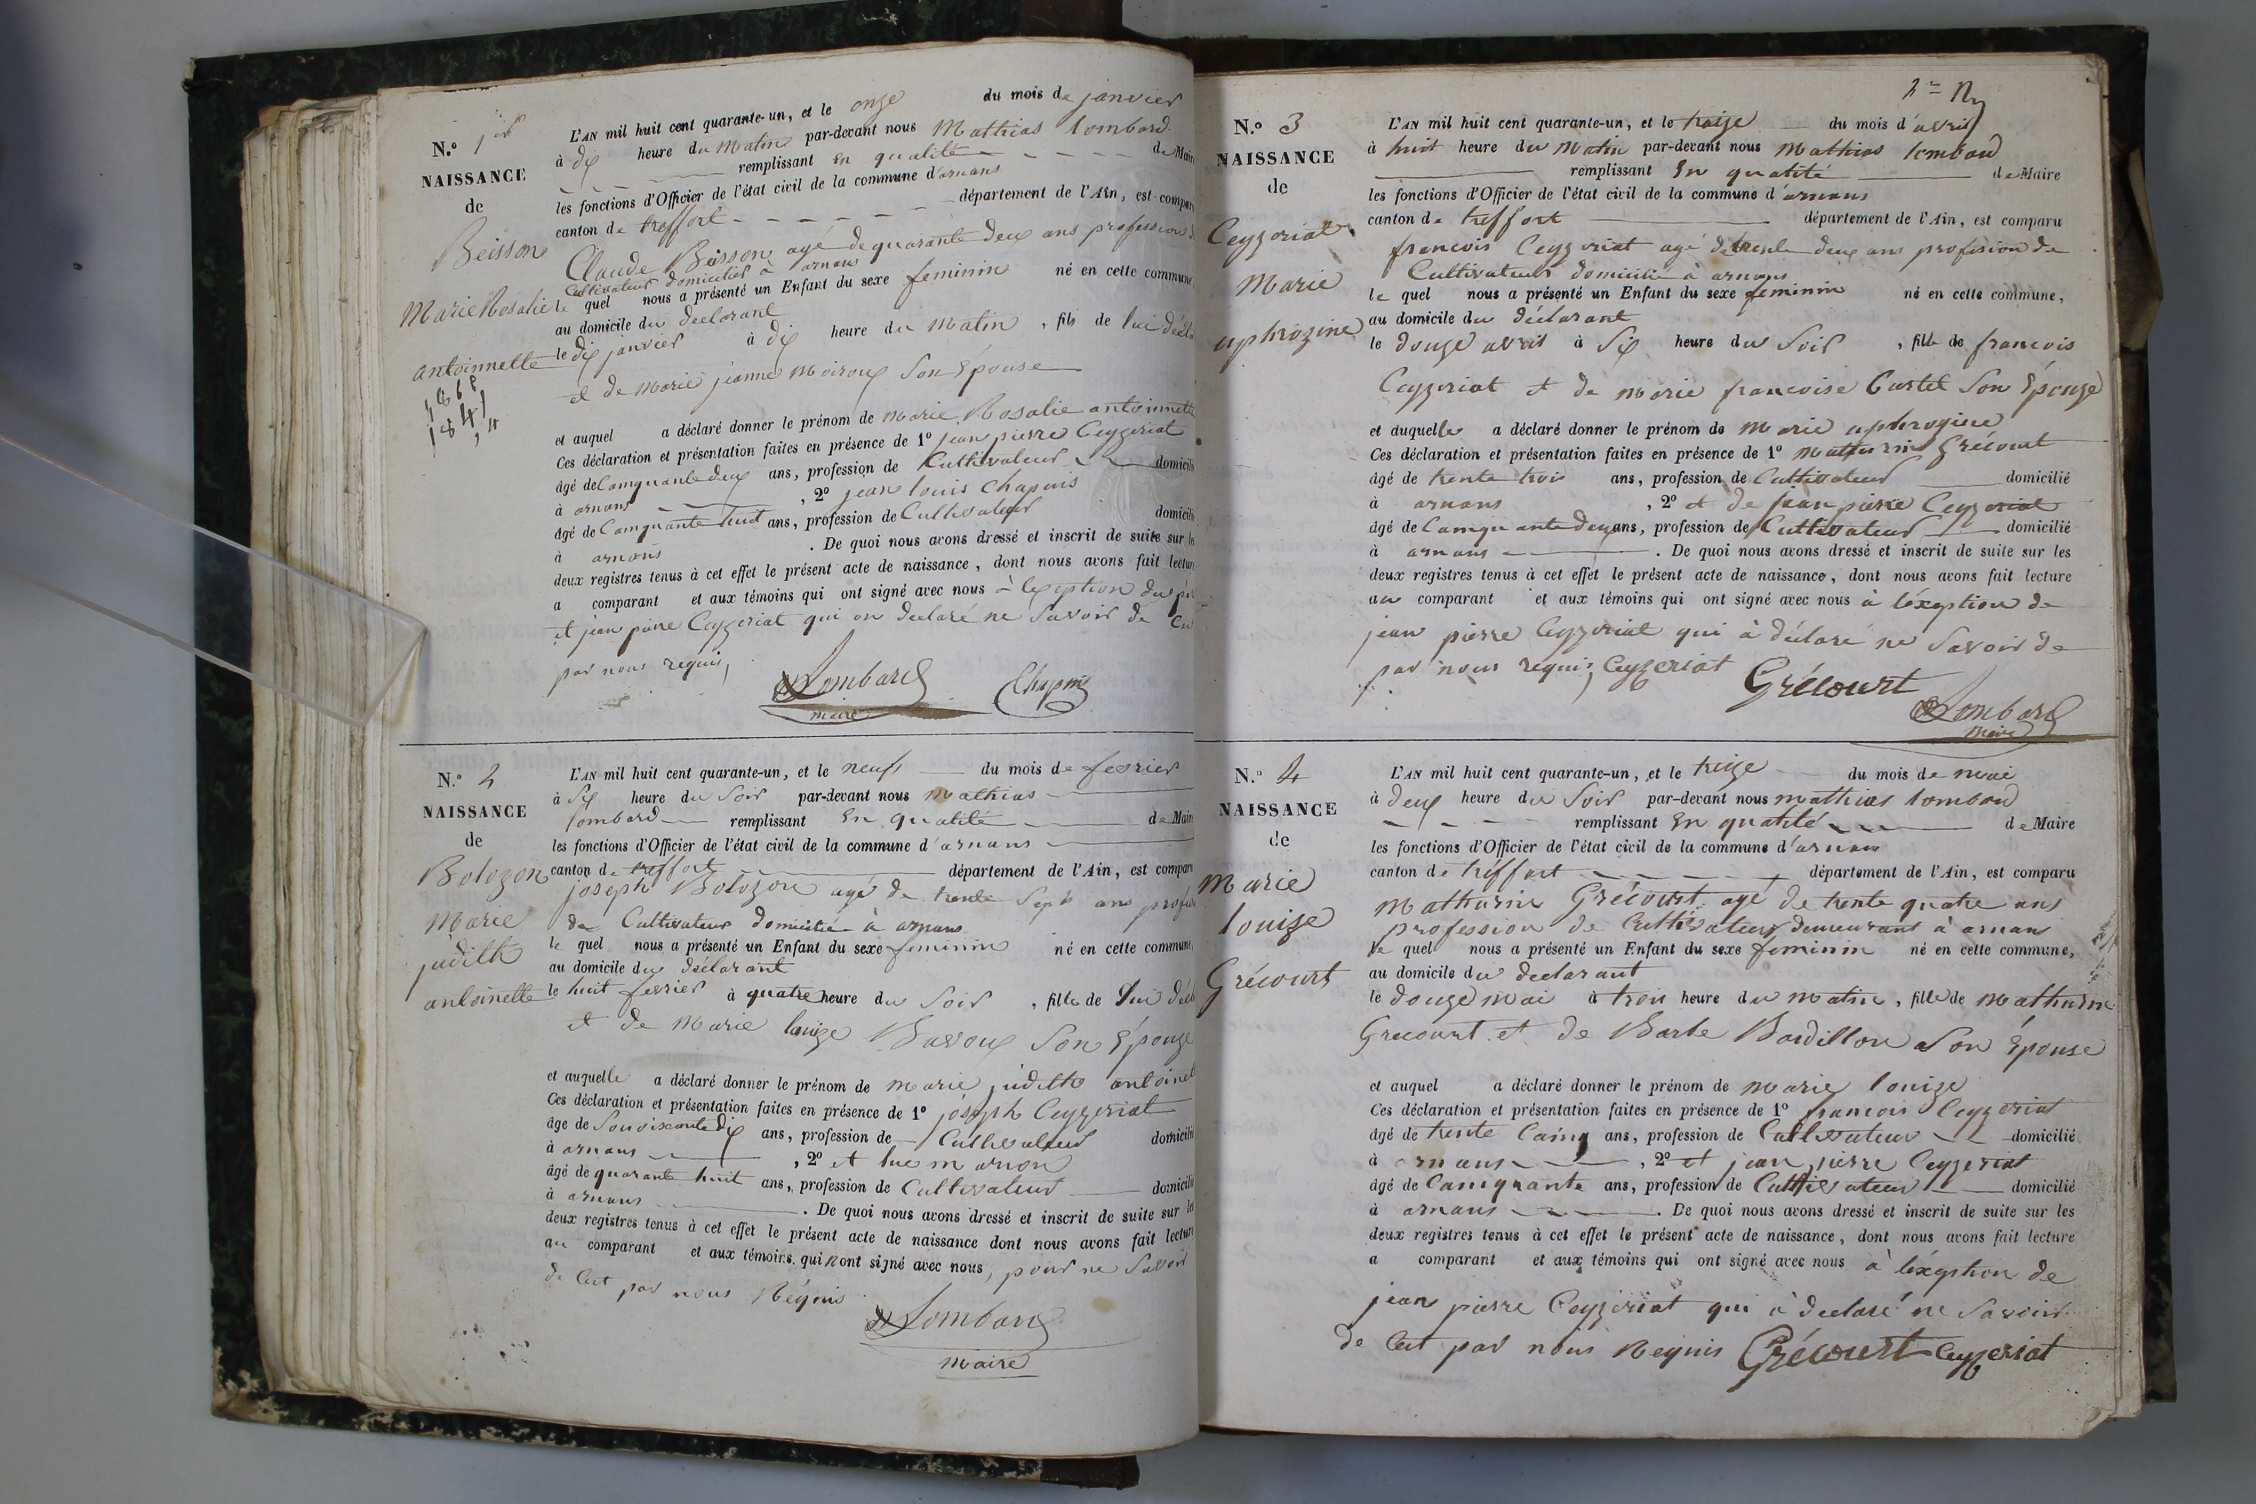 N.o 1er
NAISSANCE
de
Beisson
Marie Rosalie
antoinnette
1868
1841
L'AN mil huit cent quarante-un, et le onze du mois de janvier
à dix heure du matin par-devant nous Mathias Lombard
remplissant En qualité de Maire
les fonctions d'Officier de l'état civil de la commune d'arnans
canton de treffort département de l'Ain, est comparu
Claude Beisson agé de quarante deux ans profession de
Cultivateur domicilié à arnans
le quel nous a présenté un Enfant du sexe feminin né en cette commune,
au domicile du declarant
le dix janvier à dix heure du matin, fils de lui décla
et de Marie jeanne Moiroux Son Epouse
et auquel a déclaré donner le prénom de Marie Rosalie antoinnette
Ces déclaration et présentation faites en présence de 1o jean pierre Ceyzeriat
âgé de Cinquante deux ans, profession de Cultivateur domicilié
à arnans, 2o jean louis Chapuis
âgé de Cinquante huit ans, profession de Cultivateur domicilié
à arnans. De quoi nous avons dressé et inscrit de suite sur les
deux registres tenus à cet effet le présent acte de naissance, dont nous avons fait lecture
a comparant et aux témoins qui ont signé avec nous à l'exeption du père
et jean pierre Ceyzeriat qui on declaré ne Savoir de Ce
par nous requis,
Lombard Chapuis
maire
N.o 2
NAISSANCE
de
Bolozon
Marie
judith
antoinette
L'AN mil huit cent quarante-un, et le neuf du mois de fevrier
à Six heure du Soir par-devant nous Mathias
Lombard remplissant En qualité de Maire
les fonctions d'Officier de l'état civil de la commune d'arnans
canton de treffort département de l'Ain, est comparu
joseph Bolozon agé de trente Sept ans profes
de Cultivateur domicilié à arnans
le quel nous a présenté un Enfant du sexe feminin né en cette commune,
au domicile du déclarant
le huit fevrier à quatre heure du Soir, fille de lui décl
et de Marie louize Bavoux Son Epouze
et auquelle a déclaré donner le prénom de Marie judith antoinet
Ces déclaration et présentation faites en présence de 1o joseph Ceyzeriat
âge de Souixante dix ans, profession de Cultivateur domicilié
à arnans, 2o et luc marion
âgé de quarante huit ans, profession de Cultivateur domicilié
à arnans. De quoi nous avons dressé et inscrit de suite sur les
deux registres tenus à cet effet le présent acte de naissance dont nous avons fait lecture
au comparant et aux témoins qui nont signé avec nous, pour ne Savoir
de Cest par nous Réquis
Lombard
Maire
N.o 3
NAISSANCE
de
Ceyzoriat
Marie
uphrozine
L'AN mil huit cent quarante-un, et le treize du mois d'avril
à huit heure du Matin par-devant nous Mathias Lombard
remplissant En qualité de Maire
les fonctions d'Officier de l'état civil de la commune d'arnans
canton de treffort département de l'Ain, est comparu
francois Ceyzoriat agé de trente deux ans profesion de
Cultivateur domicilié à arnans
le quel nous a présenté un Enfant du sexe feminin né en cette commune,
au domicile du déclarant
le douze avril à Six heure du Soir, fille de francois
Ceyzeriat et de Marie francoise Curtil Son Epouze
et auquelle a déclaré donner le prénom de Marie uphrozine
Ces déclaration et présentation faites en présence de 1o Mathurin Grécourt
âgé de trente trois ans, profession de Cultivateur domicilié
à arnans, 2o et de jean pierre Ceyzeriat
âgé de Cainquante deux ans, profession de Cultivateur domicilié
à arnans. De quoi nous avons dressé et inscrit de suite sur les
deux registres tenus à cet effet le présent acte de naissance, dont nous avons fait lecture
au comparant et aux témoins qui ont signé avec nous à l'éxeption de
jean pierre Ceyzeriat qui à déclaré ne Savoir de
par nous requis, Ceyzeriat Grécourt
Lombard
Maire
N.o 4
NAISSANCE
de
Marie
louize
Grécourt
L'AN mil huit cent quarante-un, et le treize du mois de mai
à deux heure du Soir par-devant nous mathias Lombard
remplissant En qualité de Maire
les fonctions d'Officier de l'état civil de la commune d'arnans
canton de treffort département de l'Ain, est comparu
Mathurin Grécourt agé de trente quatre ans
profession de Cultivateur demeurant à arnan
le quel nous a présenté un Enfant du sexe feminin né en cette commune,
au domicile du declarant
le douze Mai à trois heure du matin, fille de Mathurin
Grecourt et de Barbe Bardillon Son Epouse
et auquel a déclaré donner le prénom de Marie louize
Ces déclaration et présentation faites en présence de 1o francois Ceyzeriat
âgé de trente Cainq ans, profession de Cultivateur domicilié
à arnans, 2o et jean pierre Ceyzeriat
âgé de Cainquante ans, profession de Cultivateur domicilié
à arnans. De quoi nous avons dressé et inscrit de suite sur les
deux registres tenus à cet effet le présent acte de naissance, dont nous avons fait lecture
a comparant et aux témoins qui ont signé avec nous à l'éxeption de
jean pierre Ceyzeriat qui à declaré ne Savoir
de Cest par nous Requis Grécourt Ceyzeriat